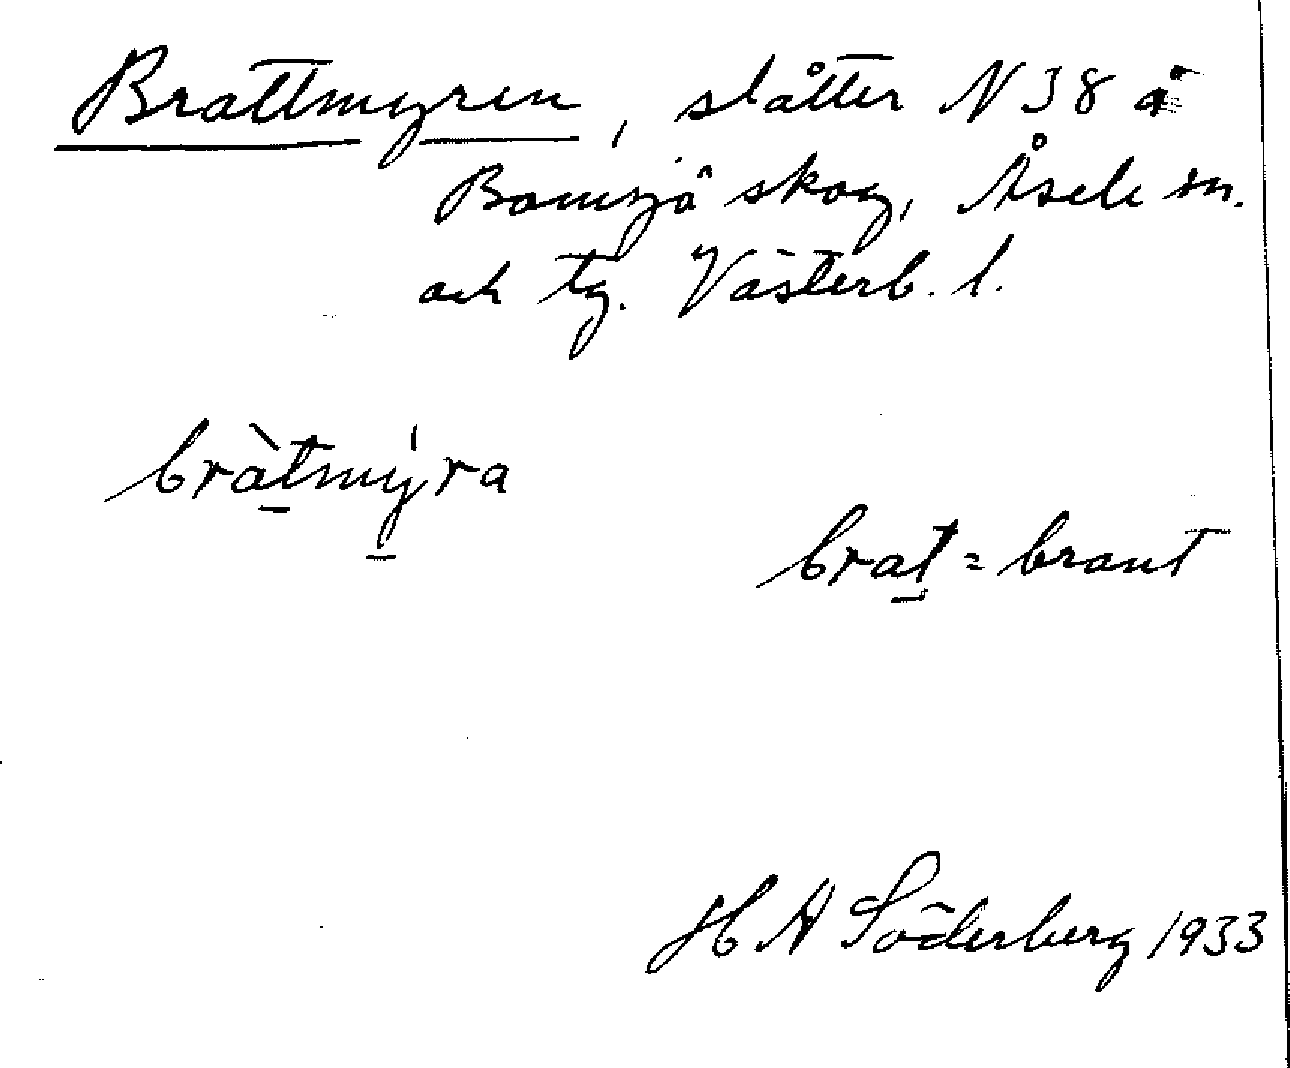 Brattmyren, slåtter N 38 å
Bomsjö skog, Åsele sn.
och tg. Västerb. l.
bràt̲mý̲ra
brat̲ = brant
H A Söderberg 1933